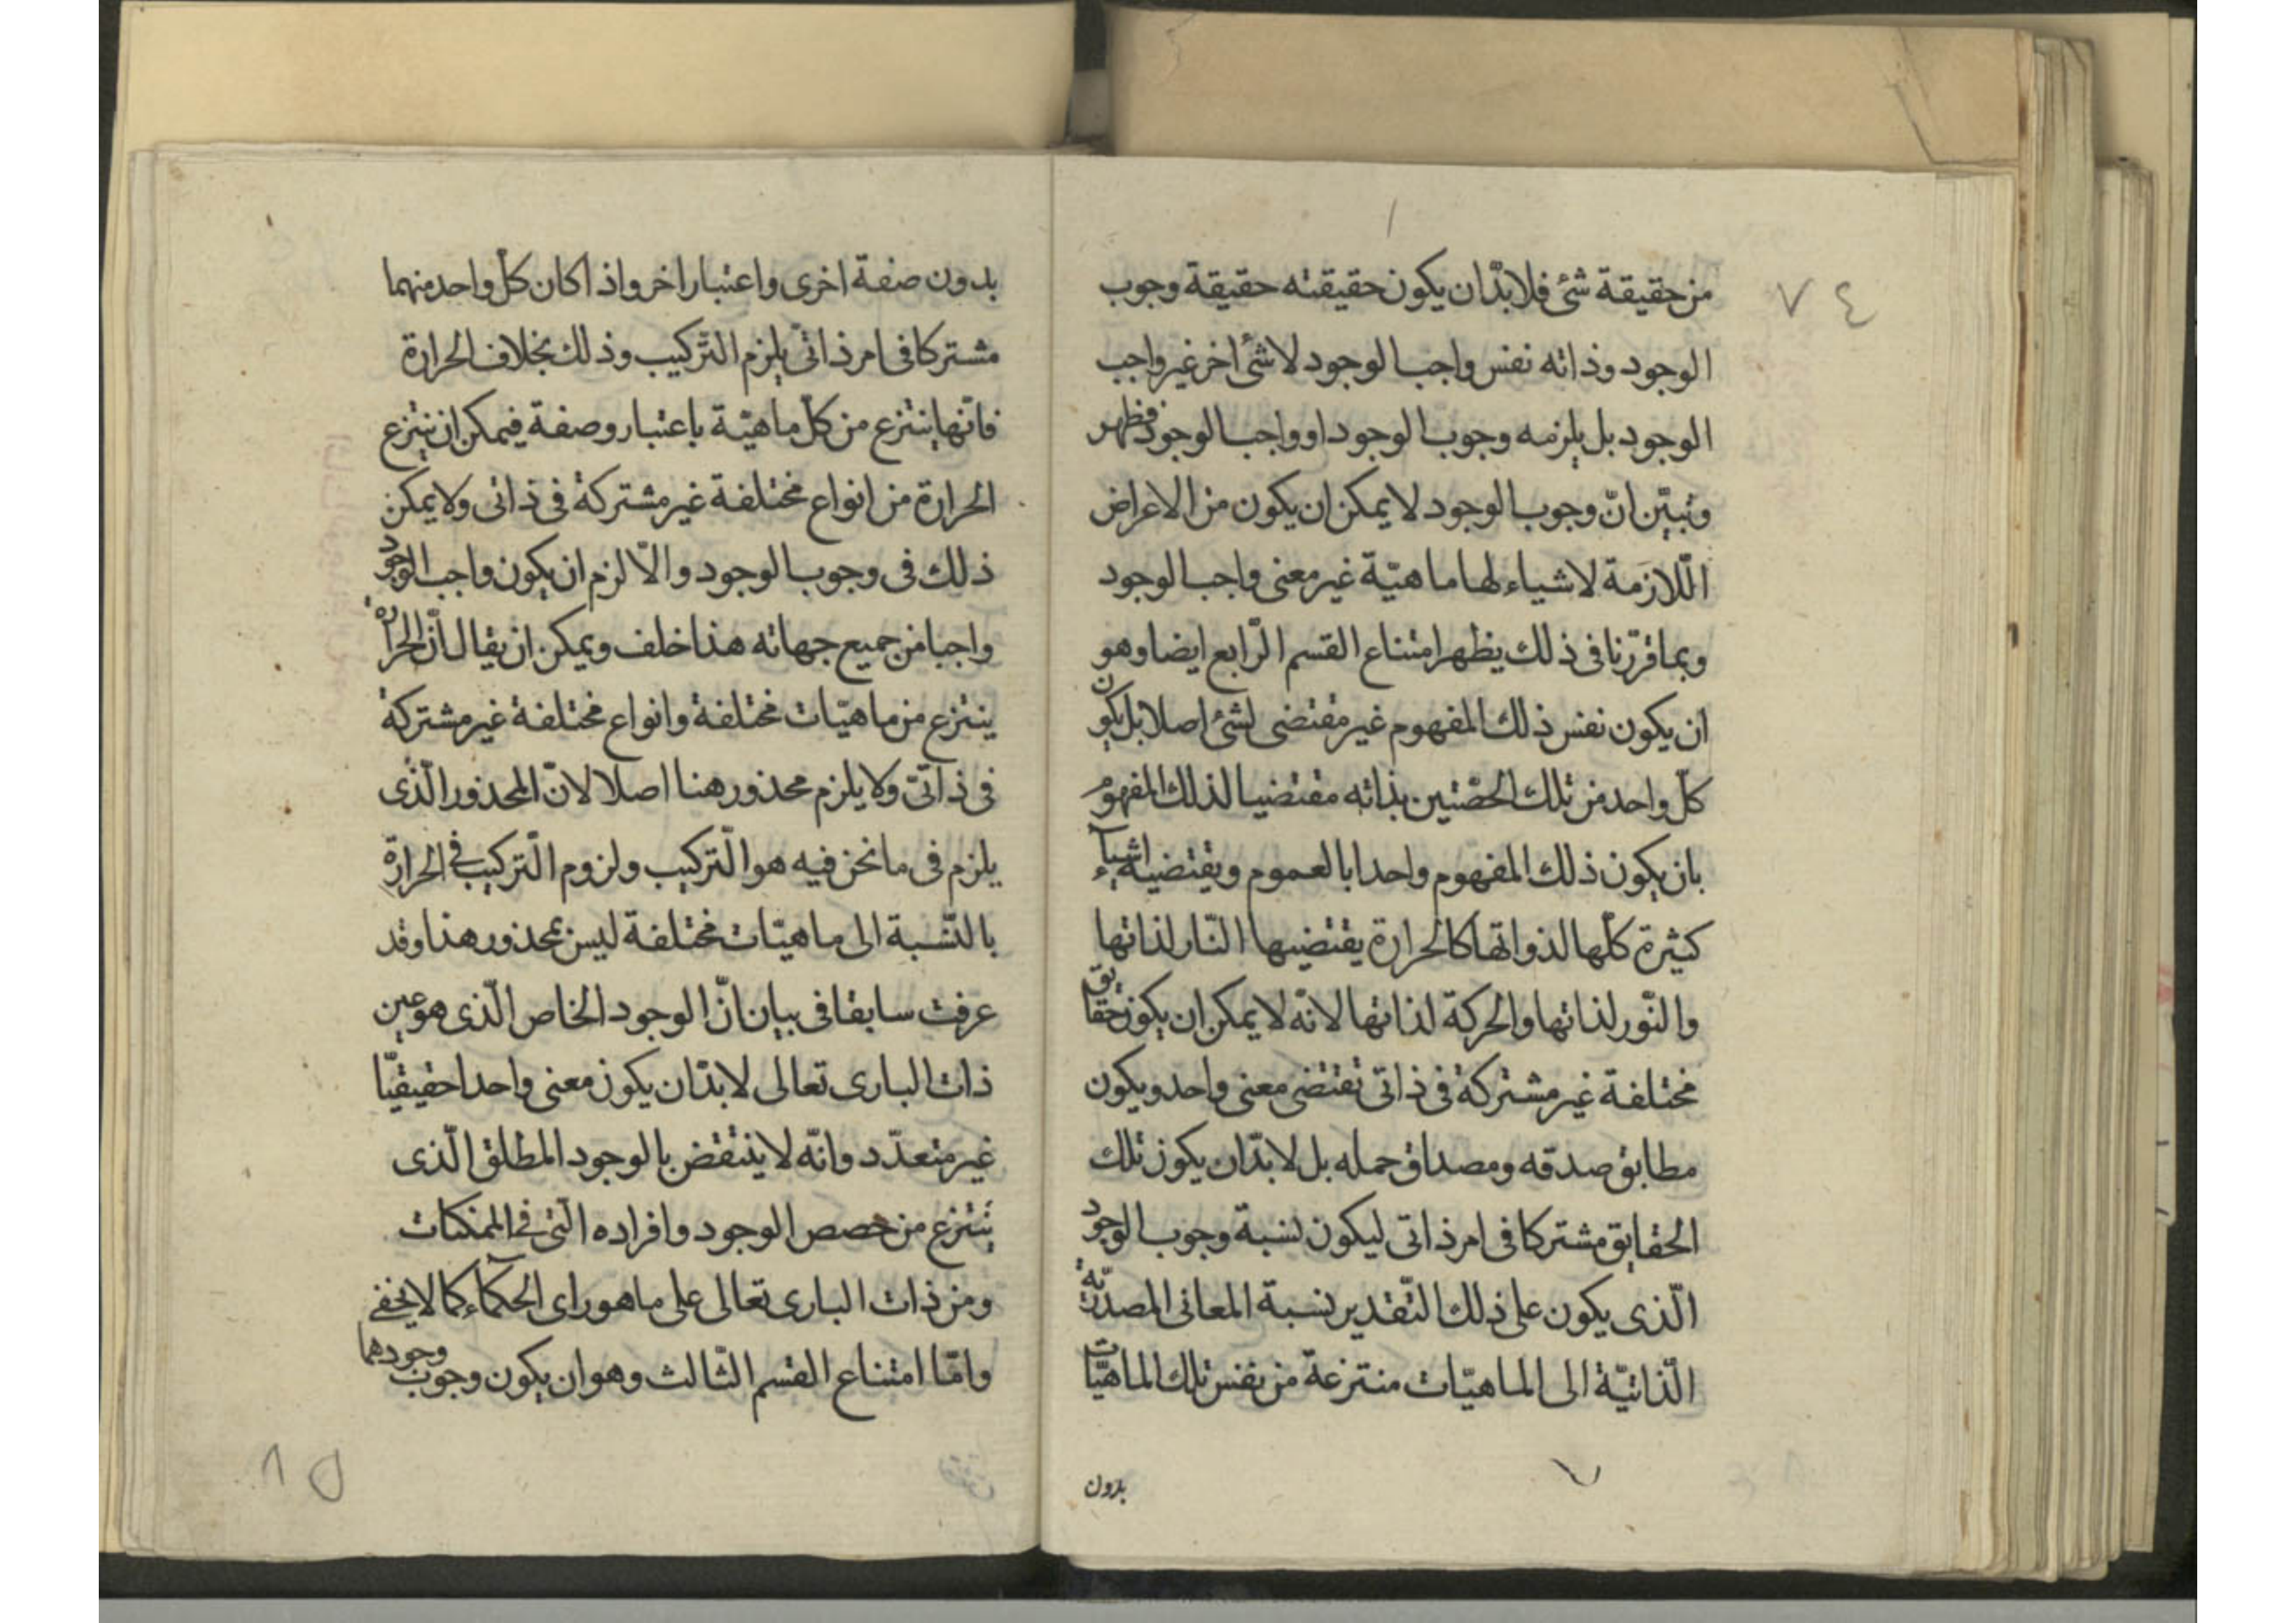 ٧٤
من حقيقة شئ فلا بدّ ان يكون حقيقته حقيقة وجوب
الوجود وذاته نفس واجب الوجود لا شئ اخر غير واجب
الوجود بل يلزمه وجوب الوجود او واجب الوجود فظهر
وتبيّن انّ وجوب الوجود لا يمكن ان يكون من الاعراض
اللّازمة لاشياء لها ماهيّة غير معنى واجب الوجود
وبما قرّرنا فى ذلك يظهر امتناع القسم الرّابع ايضا وهو
ان يكون نفس ذلك المفهوم غير مقتضى لشئ اصلا بل يكون
كلّ واحد من تلك الحصّتين بذاته مقتضيا لذلك المفهوم
بان يكون ذلك المفهوم واحدا بالعموم ويقتضيه اشياء
كثيرة كلّها لذواتها كالحرارة يقتضيها النّار لذاتها
والنّور لذاتها والحركة لذاتها لانّه لا يمكن ان يكون حقايق
مختلفة غير مشتركة فى ذاتى تقتضى معنى واحد ويكون
مطابق صدقه ومصداق حمله بل لا بدّ ان يكون تلك
الحقايق مشتركا فى امر ذاتى ليكون نسبة وجوب الوجود
الّذى يكون على ذلك التّقدير نسبة المعانى المصدريّة
الذّاتيّة الى الماهيّات منتزعة من نفس تلك الماهيّات
بدون
بدون صفة اخرى واعتبار اخر واذا كان كلّ واحد منهما
مشتركا فى امر ذاتىّ يلزم التّركيب وذلك بخلاف الحرارة
فانّها ينتزع من كلّ ماهيّة باعتبار وصفة فيمكن ان ينتزع
الحرارة من انواع مختلفة غير مشتركة فى ذاتى ولا يمكن
ذلك فى وجوب الوجود والّا لزم ان يكون واجب الوجود
واجبا من جميع جهاته هذا خلف ويمكن ان يقال انّ الحرارة
ينتزع من ماهيّات مختلفة وانواع مختلفة غير مشتركة
فى ذاتىّ ولا يلزم محذور هنا اصلا لانّ المحذور الّذى
يلزم فى ما نحن فيه هو التّركيب ولزوم التّركيب فى الحرارة
بالنّسبة الى ماهيّات مختلفة ليس بمحذور هذا وقد
عرفت سابقا فى بيان انّ الوجود الخاص الّذى هو عين
ذات البارى تعالى لا بدّ ان يكون معنى واحدا حقيقيّا
غير متعدّد وانّه لا ينتقض بالوجود المطلق الّذى
ينتزع من حصص الوجود وافراده الّتى فى الممكنات
ومن ذات البارى تعالى على ما هو راى الحكماء كما لا يخفى
وامّا امتناع القسم الثّالث وهو ان يكون وجوب وجودهما